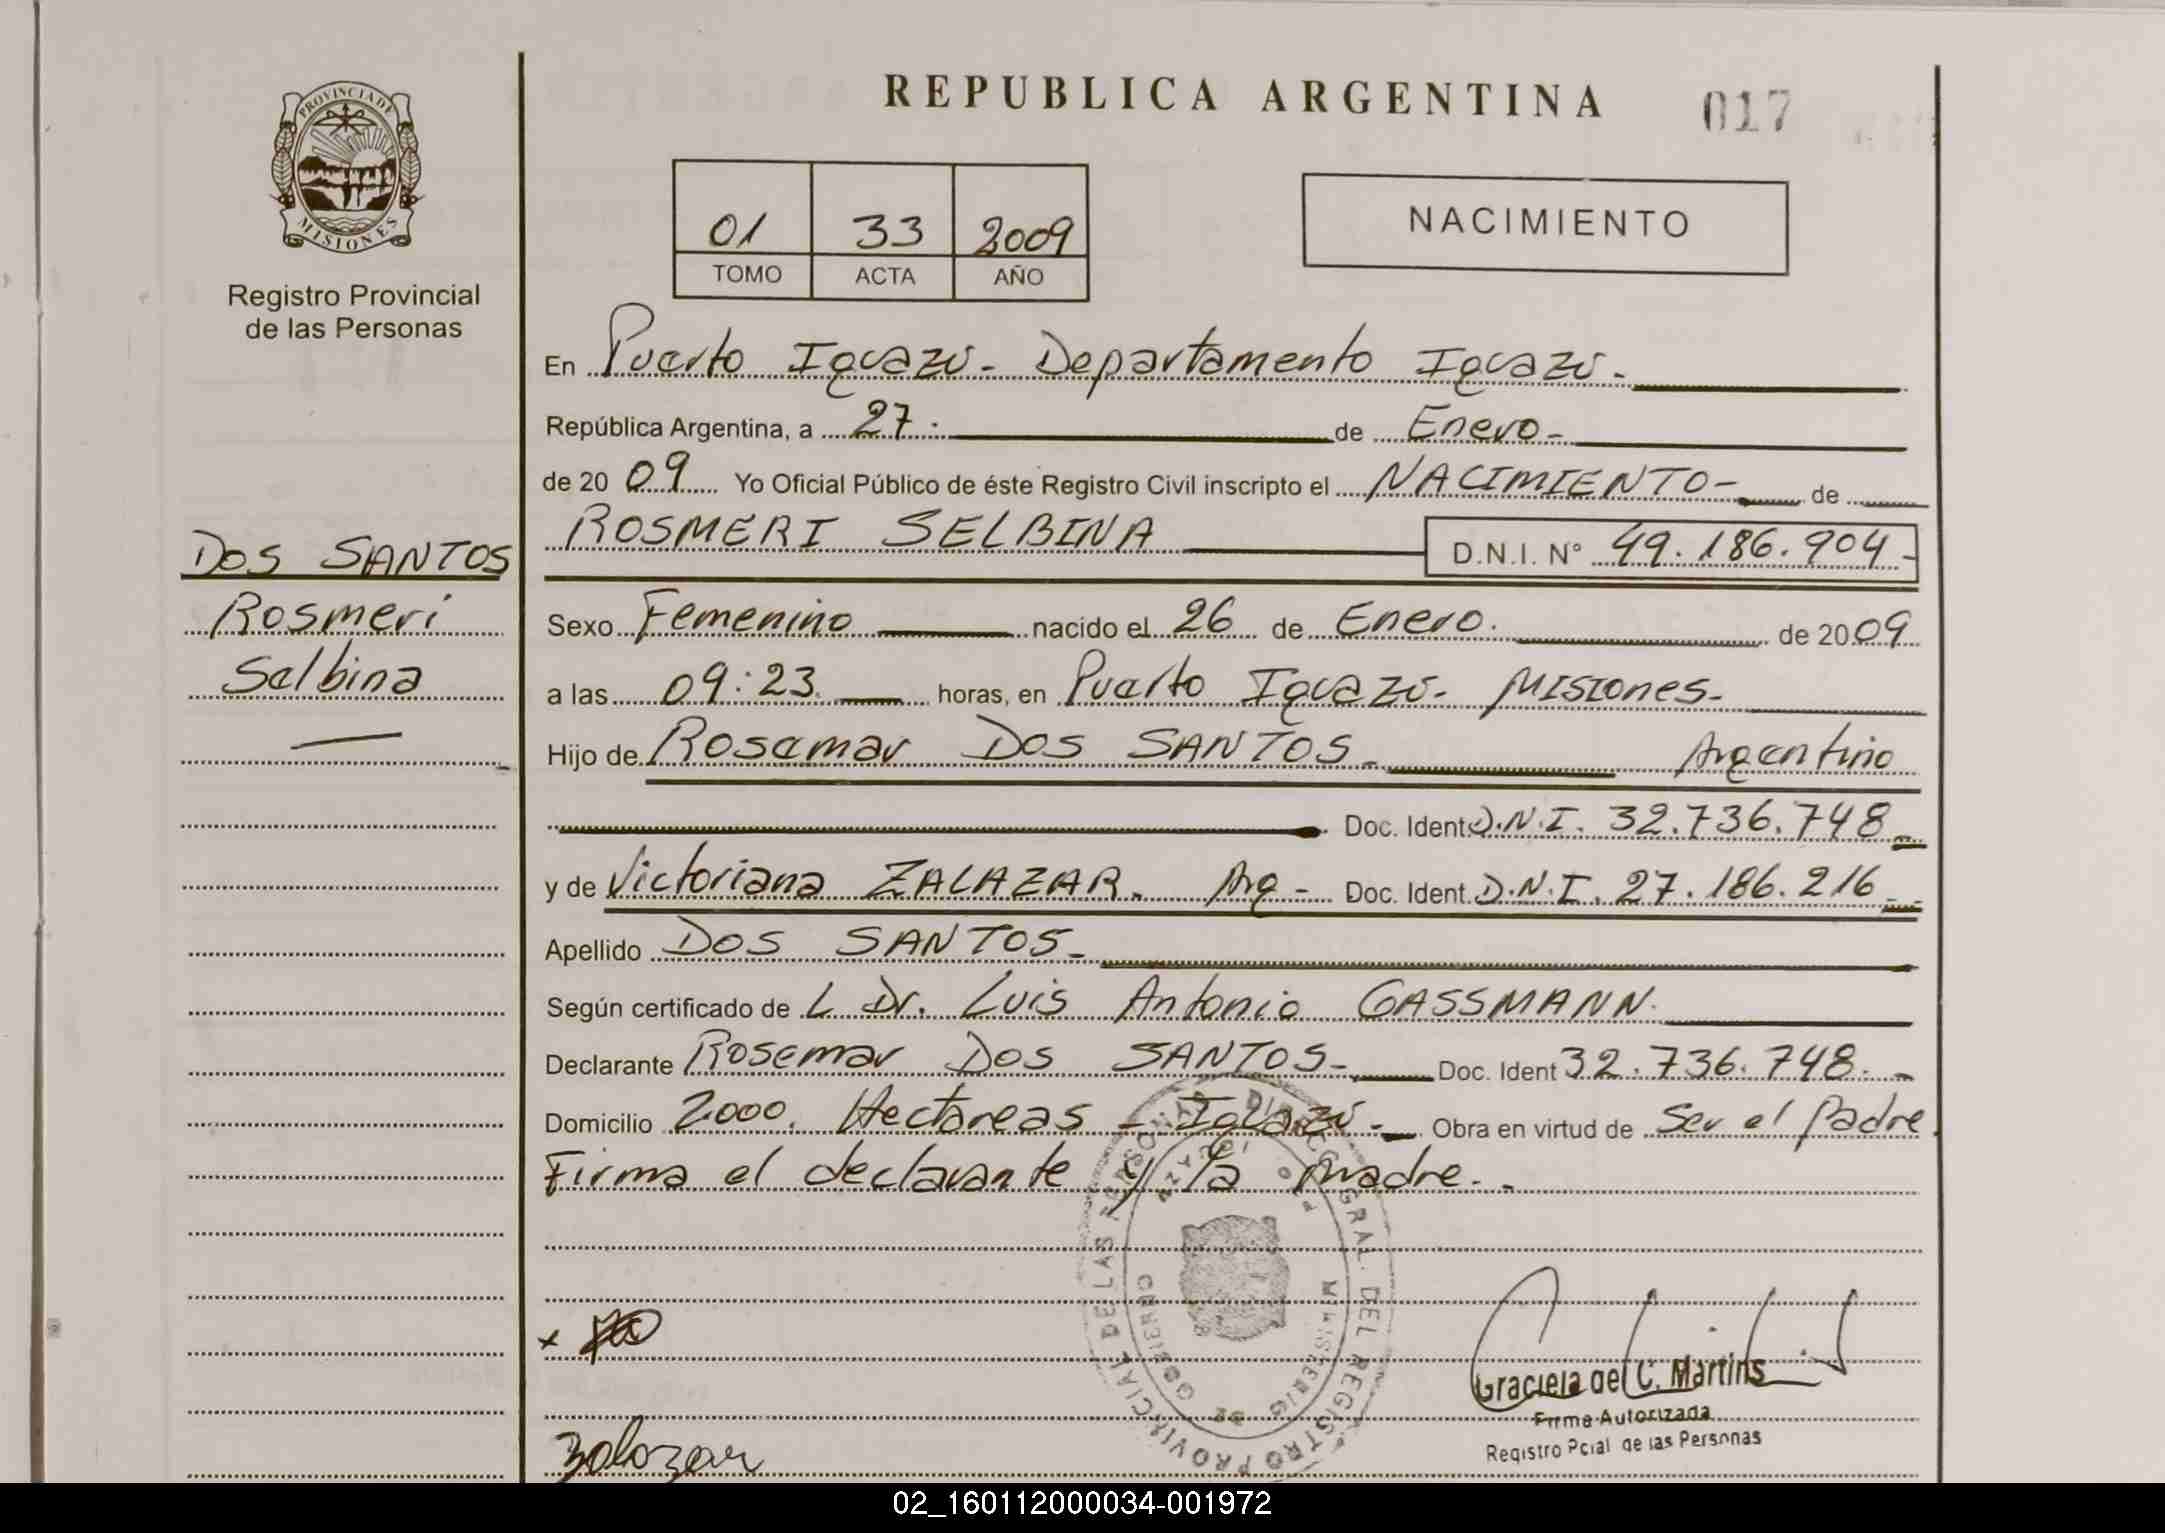 REPUBLICA ARGENTINA 017
PROVINCIA DE
MISIONES
Registro Provincial
de las Personas
01 33 2009
TOMO ACTA AÑO
NACIMIENTO
En Puerto Iguazú - Departamento Iguazú -
República Argentina, a 27 . de Enero -
de 20 09 Yo Oficial Público de éste Registro Civil inscripto el NACIMIENTO - de
ROSMERI SELBINA D.N.I. N° 49.186.904 -
DOS SANTOS
Rosmeri
Selbina
Sexo Femenino nacido el 26 de Enero. de 2009
a las 09:23 horas, en Puerto Iguazú - Misiones -
Hijo de Rosemar DOS SANTOS - Argentino
Doc. Ident. D.N.I. 32.736.748 -
y de Victoriana ZALAZAR. Arg - Doc. Ident. D.N.I. 27.186.216 -
Apellido DOS SANTOS -
Según certificado de L Dr. Luis Antonio GASSMANN.
Declarante Rosemar DOS SANTOS - Doc. Ident 32.736.748. -
Domicilio 2000 Hectareas - Iguazú - Obra en virtud de Ser el Padre.
Firma el declarante y la madre. -
DIRECC. GRAL. DEL REGISTRO PROVINCIAL DE LAS PERSONAS
MINISTERIO DE GOBIERNO
Graciela del C. Martins
Firma Autorizada
Registro Pcial de las Personas
Zalazar
02_160112000034-001972